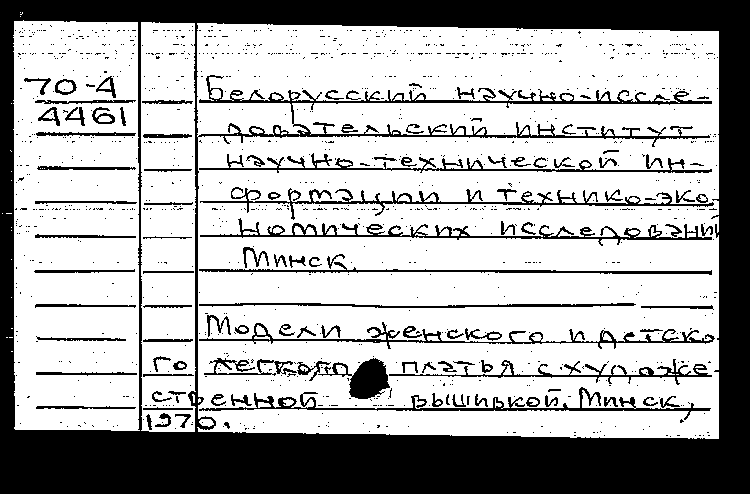 70-4
4461
Белорусский научно-иссле-
довательский институт
научно-технической ин-
формации и технико-эко-
номических исследований
Минск.
Модели женского и детско
го легкого платья с художе-
ственной вышивкой. Минск,
1970.